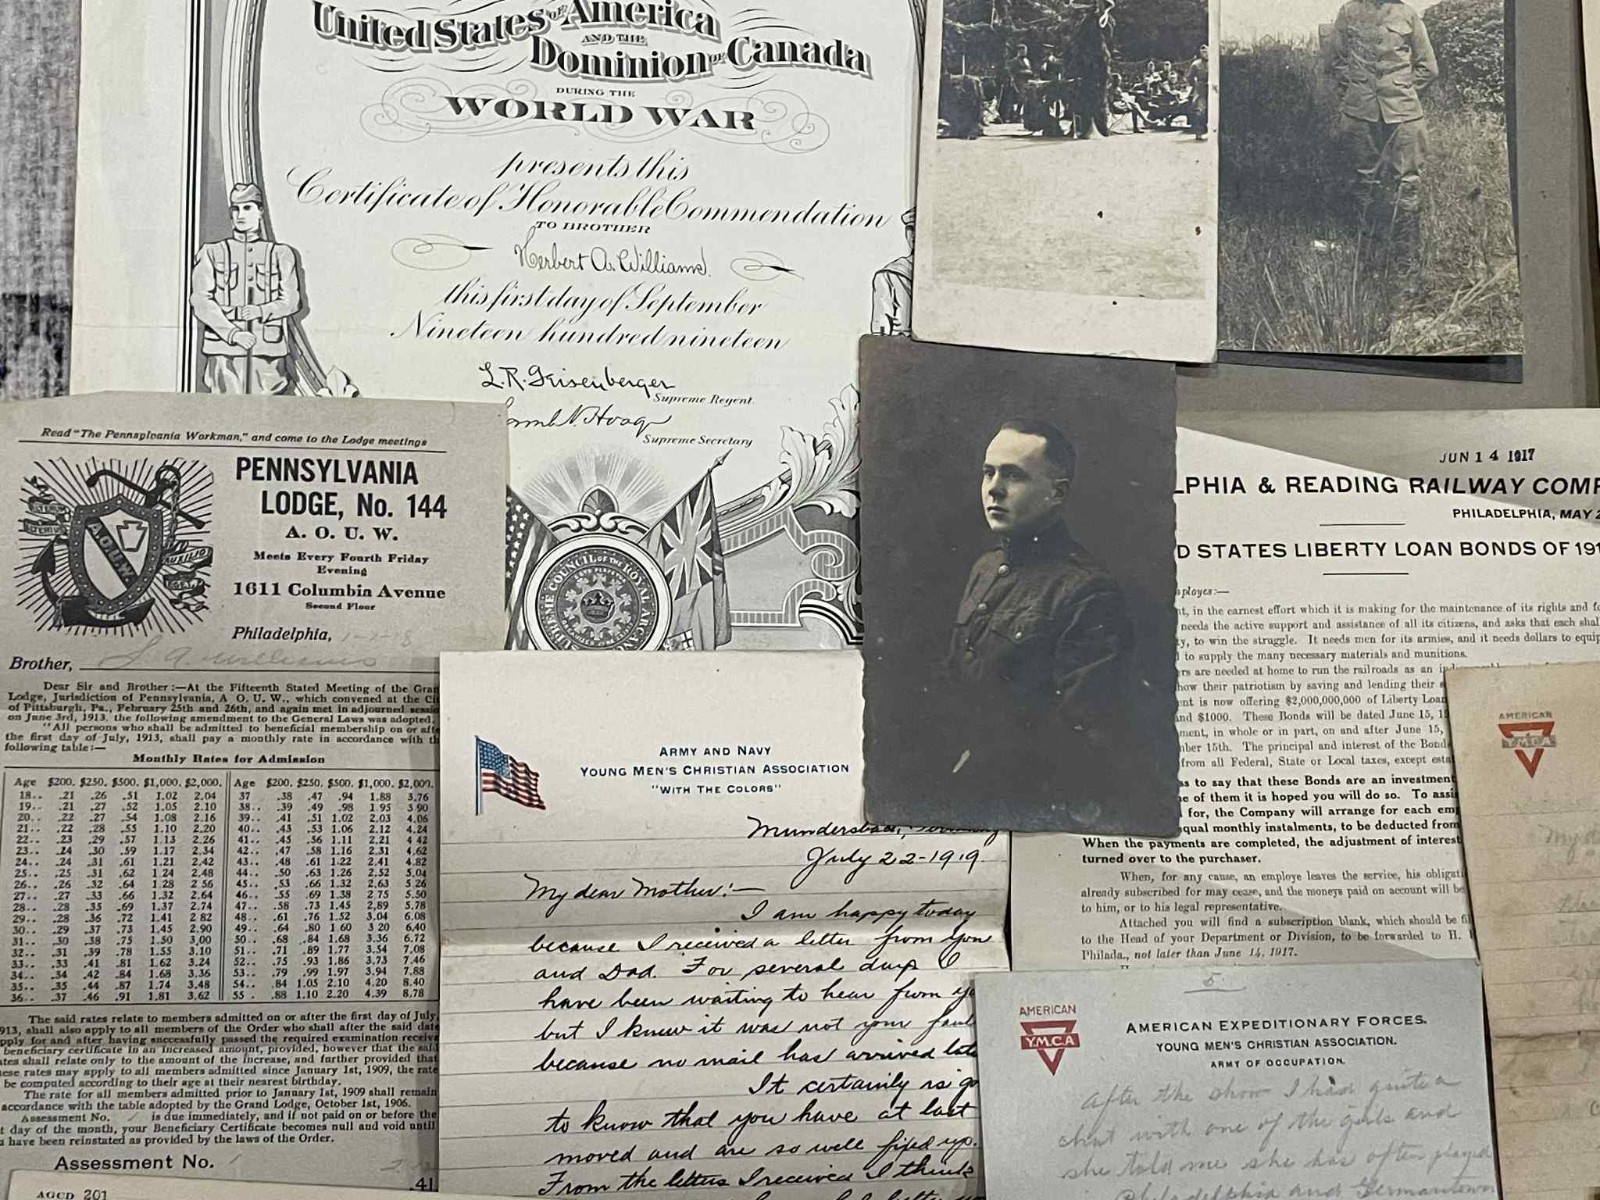 United States of America
AND THE
Dominion of Canada
DURING THE
WORLD WAR
presents this
Certificate of Honorable Commendation
TO BROTHER
Herbert A. Williams.
this first day of September
Nineteen hundred nineteen
L.R. Geisenberger
Supreme Regent.
N. Hoag
Supreme Secretary
SUPREME COUNCIL OF THE ROYAL
Read "The Pennsylvania Workman," and come to the Lodge meetings
PENNSYLVANIA
LODGE, No. 144
A. O. U. W.
Meets Every Fourth Friday
Evening
1611 Columbia Avenue
Second Floor
Philadelphia,
Brother, Williams
Dear Sir and Brother:—At the Fifteenth Stated Meeting of the Gran
Lodge, Jurisdiction of Pennsylvania, A. O. U. W., which convened at the Ci
of Pittsburg, Pa., February 25th and 26th, and again met in adjourned sessi
on June 3rd, 1913, the following amendment to the General Laws was adopted.
"All persons who shall be admitted to beneficial membership on or afte
the first day of July, 1913, shall pay a monthly rate in accordance with th
following table:—
Monthly Rates for Admission
Age $200. $250. $500. $1,000. $2,000. Age $200. $250. $500. $1,000. $2,000.
18.. .21 .26 .51 1.02 2.04 37 .38 .47 .94 1.88 3.76
19.. .21 .27 .52 1.05 2.10 38.. .39 .49 .98 1.95 3 90
20.. .22 .27 .54 1.08 2.16 39.. .41 .51 1.02 2.03 4.06
21.. .22 .28 .55 1.10 2.20 40.. .43 .53 1.06 2.12 4.24
22.. .23 .29 .57 1.13 2.26 41.. .45 .56 1.11 2.21 4 42
23.. .24 .30 .59 1.17 2.34 42.. .47 .58 1.16 2.31 4.62
24.. .24 .31 .61 1.21 2.42 43.. .48 .61 1.22 2.41 4.82
25.. .25 .31 .62 1.24 2.48 44.. .50 .63 1.26 2.52 5.04
26.. .26 .32 .64 1.28 2 56 45.. .53 .66 1.32 2.63 5 26
27.. .27 .33 .66 1.32 2.64 46.. .55 .69 1.38 2 75 5.50
28.. .28 .35 .69 1.37 2.74 47.. .58 .73 1.45 2,89 5.78
29.. .28 .36 .72 1.41 2 82 48.. .61 .76 1.52 3.04 6.08
30.. .29 .37 .73 1.45 2.90 49.. .64 .80 1.60 3 20 6.40
31.. .30 .38 .75 1.50 3,00 50.. .68 .84 1.68 3.36 6.72
32.. .31 .39 .78 1.55 3.10 51.. .71 .89 1.77 3.54 7.08
33.. .33 .41 .81 1.62 3.24 52.. .75 .93 1.86 3.73 7.46
34.. .34 .42 .84 1.68 3.36 53.. .79 .99 1.97 3.94 7.88
35.. .35 .44 .87 1.74 3.48 54.. .84 1.05 2.10 4.20 8.40
36.. .37 .46 .91 1.81 3.62 55 . .88 1.10 2.20 4.39 8.78
The said rates relate to members admitted on or after the first day of July,
913, shall also apply to all members of the Order who shall after the said date
pply for and after having successfully passed the required examination receive
beneficiary certificate in an increased amount, provided, however that the said
ates shall relate only to the amount of the increase, and further provided that
hese rates may apply to all members admitted since January 1st, 1909, the rate
be computed according to their age at their nearest birthday.
The rate for all members admitted prior to January 1st, 1909 shall remain
accordance with the table adopted by the Grand Lodge, October 1st, 1906.
Assessment No. is due immediately, and if not paid on or before the
t day of the month, your Beneficiary Certificate becomes null and void until
have been reinstated as provided by the laws of the Order.
Assessment No.
.41
AGCD 201
ARMY AND NAVY
YOUNG MEN'S CHRISTIAN ASSOCIATION
"WITH THE COLORS"
July 22-1919.
My dear Mother:—
I am happy today
because I received a letter from you
and Dad. For several days I
have been waiting to hear from yo
but I knew it was not your faul
because no mail has arrived late
It certainly is go
to know that you have at last
moved and are so well fixed up.
From the letters I received I think
JUN 14 1917
LPHIA & READING RAILWAY COMP
PHILADELPHIA, MAY 2
D STATES LIBERTY LOAN BONDS OF 191
ployes:—
nt, in the earnest effort which it is making for the maintenance of its rights and fo
needs the active support and assistance of all its citizens, and asks that each shal
y, to win the struggle. It needs men for its armies, and it needs dollars to equip
to supply the many necessary materials and munitions.
rs are needed at home to run the railroads as an
how their patriotism by saving and lending their
nt is now offering $2,000,000,000 of Liberty Loan
nd $1000. These Bonds will be dated June 15, 19
ment, in whole or in part, on and after June 15,
ber 15th. The principal and interest of the Bond
from all Federal, State or Local taxes, except esta
as to say that these Bonds are an investment
e of them it is hoped you will do so. To assi
for, the Company will arrange for each em
qual monthly instalments, to be deducted from
When the payments are completed, the adjustment of interest
turned over to the purchaser.
When, for any cause, an employe leaves the service, his obligat
already subscribed for may cease, and the moneys paid on account will be
to him, or to his legal representative.
Attached you will find a subscription blank, which should be fil
to the Head of your Department or Division, to be forwarded to H.
Philada., not later than June 14, 1917.
AMERICAN
Y.M.C.A.
5.
AMERICAN
Y.M.C.A.
AMERICAN EXPEDITIONARY FORCES.
YOUNG MEN'S CHRISTIAN ASSOCIATION.
ARMY OF OCCUPATION.
After the show I had quite a
chat with one of the girls and
she told me she has often played
Philadelphia and Germantown